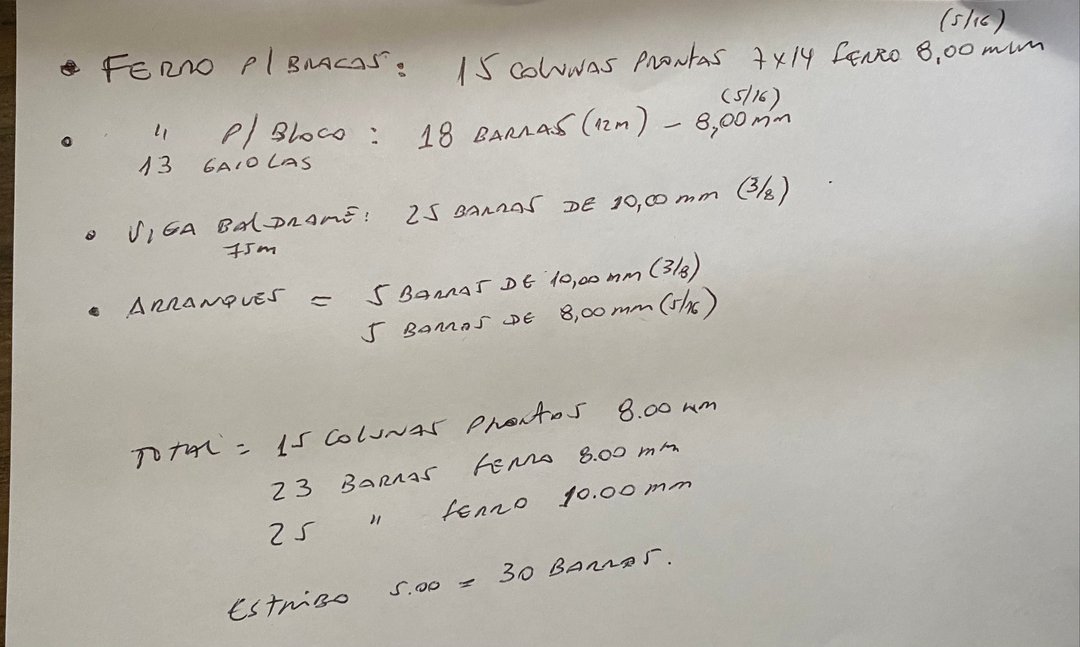 • FERRO P/ BRACAS: 15 COLUNAS PRONTAS 7x14 FERRO 8,00mm (5/16)
• " P/ BLOCO: 18 BARRAS (12m) - 8,00mm (5/16)
13 GAIOLAS
• VIGA BALDRAME: 25 BARRAS DE 10,00mm (3/8)
75m
• ARRANQUES = 5 BARRAS DE 10,00mm (3/8)
5 BARRAS DE 8,00mm (5/16)
TOTAL = 15 COLUNAS PRONTAS 8.00 mm
23 BARRAS FERRO 8.00 mm
25 " FERRO 10.00 mm
ESTRIBO 5.00 = 30 BARRAS.